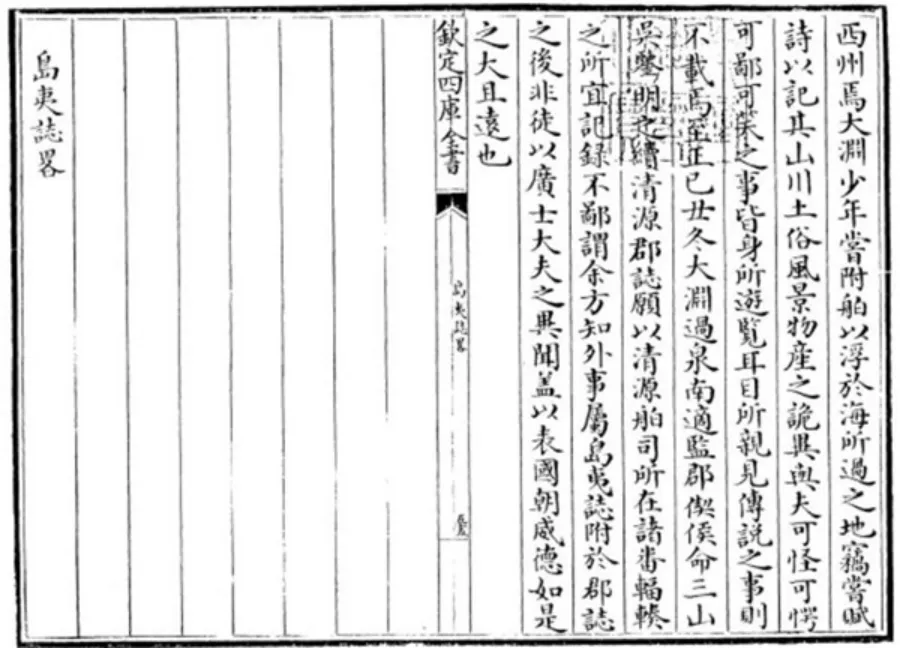 西州焉大淵少年嘗附舶以浮於海所過之地竊嘗賦
詩以記其山川土俗風景物産之詭異與夫可怪可愕
可鄙可笑之事皆身所遊覽耳目所親見傳說之事則
不載焉至正已丑冬大淵過泉南適監郡偰侯命三山
吳鑒明之續清源郡誌願以清源舶司所在諸番輻輳
之所宜記録不鄙謂余方知外事屬島夷誌附於郡誌
之後非徒以廣士大夫之異聞盖以表國朝威德如是
之大且遠也
欽定四庫全書
島夷誌畧
島夷誌畧